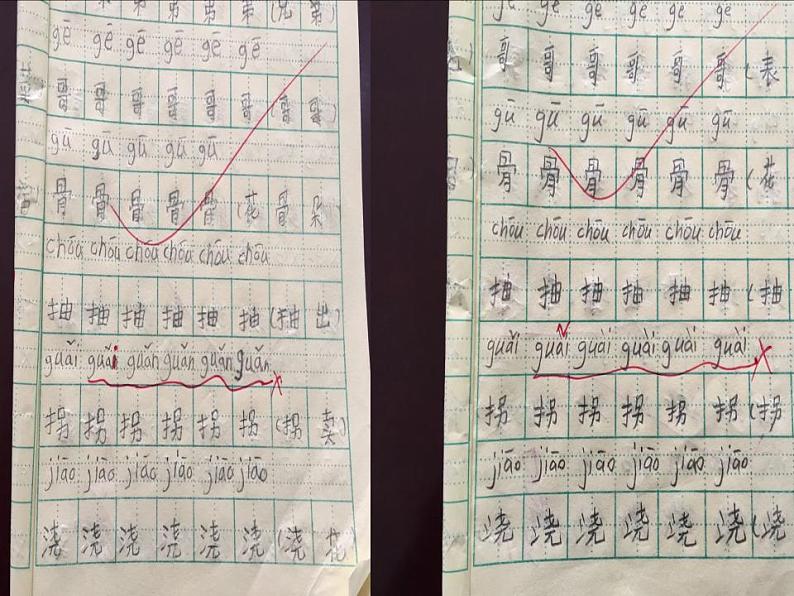 弟 弟 弟 弟 弟 (兄 弟)
gē gē gē gē gē gē
哥 哥 哥 哥 哥 哥 (哥 哥)
gū gū gū gū gū
骨 骨 骨 骨 骨 (花 骨 朵
chōu chōu chōu chōu chōu chōu
抽 抽 抽 抽 抽 抽 (抽 出)
guǎi guǎi guǎn guǎn guǎn guǎn
拐 拐 拐 拐 拐 拐 (拐 卖)
jiāo jiāo jiāo jiāo jiāo jiāo
浇 浇 浇 浇 浇 浇 (浇 花
gē gē gē gē gē gē
哥 哥 哥 哥 哥 哥 (表
gū gū gū gū gū gū
骨 骨 骨 骨 骨 骨 (花
chōu chōu chōu chōu chōu chōu
抽 抽 抽 抽 抽 抽 (抽
guǎi guāi guài guài guài guài
拐 拐 拐 拐 拐 拐 (拐
jiāo jiāo jiāo jiāo jiāo jiāo
浇 浇 浇 浇 浇 浇 (浇